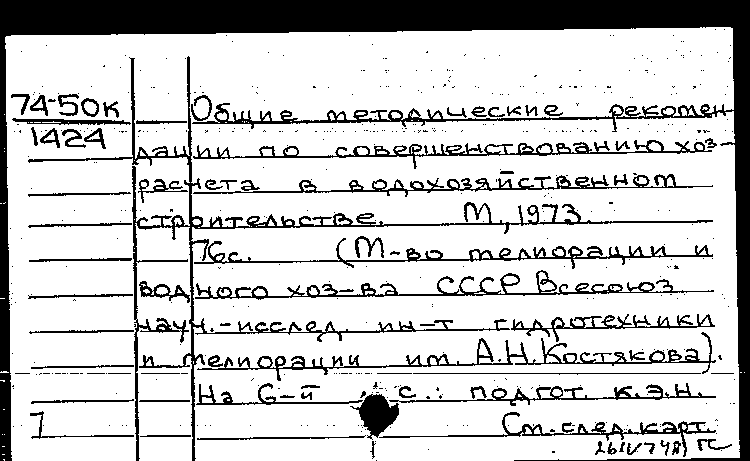 74-50к
1424
Общие методические рекомен-
дации по совершенствованию хоз-
расчета в водохозяйственном
строительстве. М., 1973.
76с. (М-во мелиорации и
водного хоз-ва СССР Всесоюз.
науч.-исслед. ин-т гидротехники
и мелиорации им. А.Н.Костякова).
На 6-й с.: подгот. к.э.н.
1 См. след. карт.